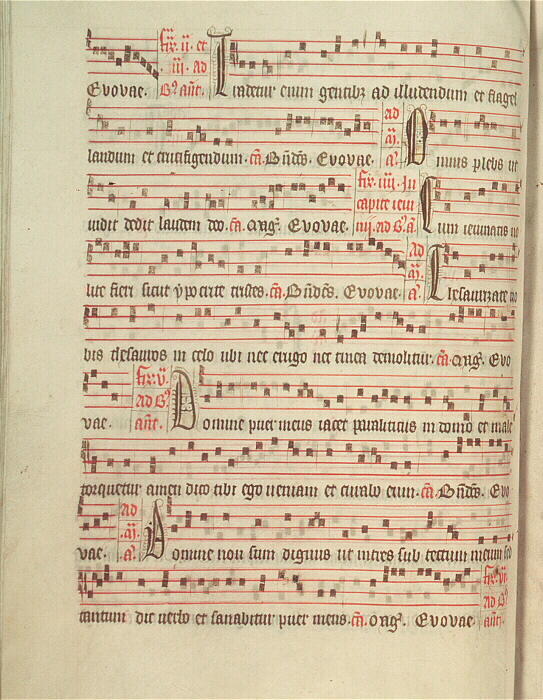 fer. ii. et
iii. ad
Evovae. B⁹ añt. Tradetur enim gentibꝫ ad illudendum et flagel
landum et crucifigendum. cā. Bñdcs. Evovae. ad
m̄. a. Omnis plebs ut
vidit dedit laudem deo. cā. Mag. Evovae. fer. iiii. In
capite ieiu
nij. ad B⁹. a. Cum ieiunatis no
lite fieri sicut ypocrite tristes. cā. Bñdcs. Evovae. Ad
m̄. a. Thesaurizate vo
bis thesauros in celo ubi nec erugo nec tinea demolitur. cā. Mag. Evo
vae. fer. v.
ad B⁹
añt. Domine puer meus iacet paraliticus in domo et male
torquetur amen dico tibi ego veniam et curabo eum. cā. Bñdcs. Evo
vae. ad
m̄.
a. Domine non sum dignus ut intres sub tectum meum sed
tantum dic verbo et sanabitur puer meus. cā. Mag. Evovae. fer. vi.
ad B⁹
añt.